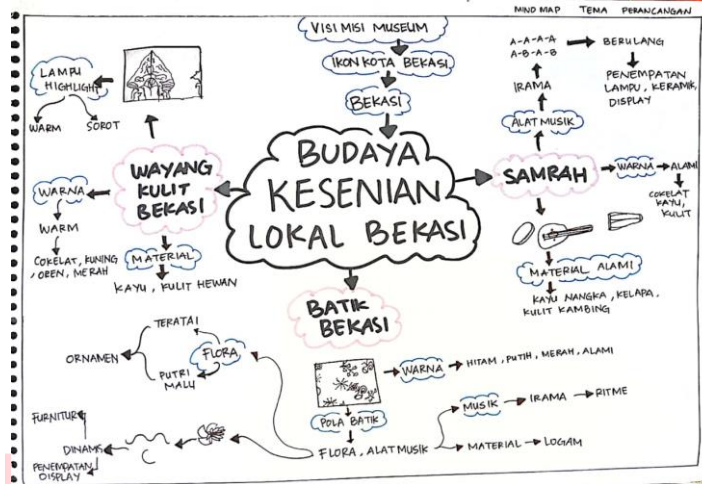 MIND MAP TEMA PERANCANGAN
VISI MISI MUSEUM
IKON KOTA BEKASI
BEKASI
BUDAYA
KESENIAN
LOKAL BEKASI
LAMPU
HIGHLIGHT
WARM
SOROT
WAYANG
KULIT
BEKASI
WARNA
WARM
COKELAT, KUNING,
OREN, MERAH
MATERIAL
KAYU, KULIT HEWAN
A-A-A-A
A-B-A-B
BERULANG
PENEMPATAN
LAMPU, KERAMIK,
DISPLAY
IRAMA
ALAT MUSIK
SAMRAH
WARNA
ALAMI
COKELAT
KAYU,
KULIT
MATERIAL ALAMI
KAYU NANGKA, KELAPA,
KULIT KAMBING
BATIK
BEKASI
WARNA
HITAM, PUTIH, MERAH, ALAMI
POLA BATIK
FLORA, ALAT MUSIK
MUSIK
IRAMA
RITME
MATERIAL
LOGAM
FLORA
TERATAI
PUTRI
MALU
ORNAMEN
FURNITUR
DINAMIS
PENEMPATAN
DISPLAY